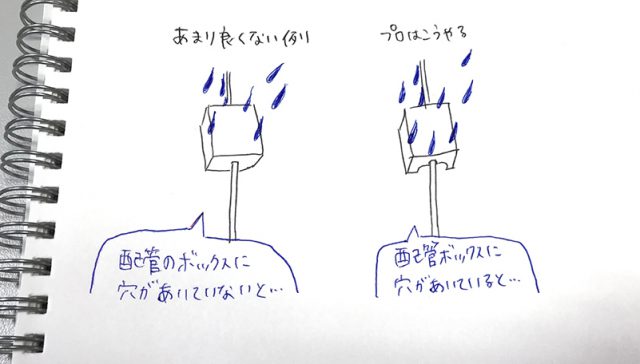 あまり良くない例り
プロはこうやる
配管のボックスに
穴があいていないと…
配管ボックスに
穴があいていると…